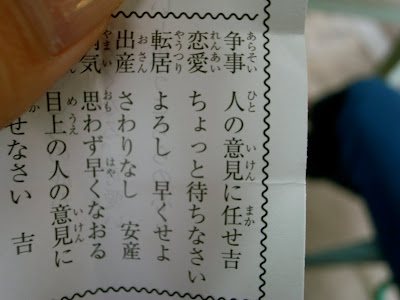 争事 人の意見に任せ吉
恋愛 ちょっと待ちなさい
転居 よろし 早くせよ
出産 さわりなし 安産
気 思わず早くなおる
目上の人の意見に
せなさい 吉